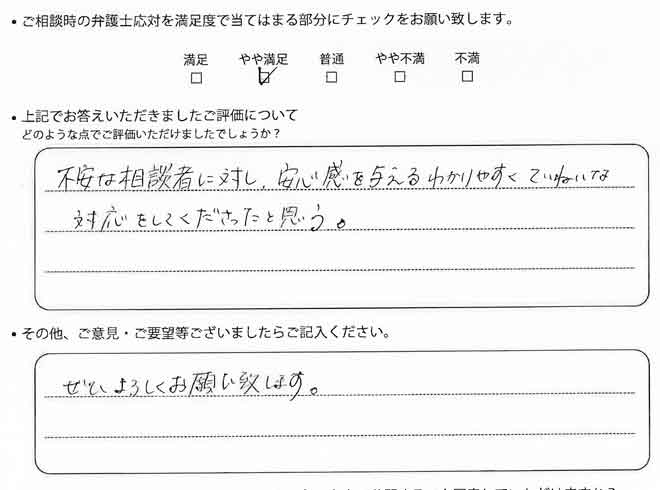 • ご相談時の弁護士応対を満足度で当てはまる部分にチェックをお願い致します。
満足 やや満足 普通 やや不満 不満
□ ☑ □ □ □
• 上記でお答えいただきましたご評価について
どのような点でご評価いただけましたでしょうか?
不安な相談者に対し、安心感を与えるわかりやすくていねいな
対応をしてくださったと思う。
• その他、ご意見・ご要望等ございましたらご記入ください。
ぜひよろしくお願い致します。